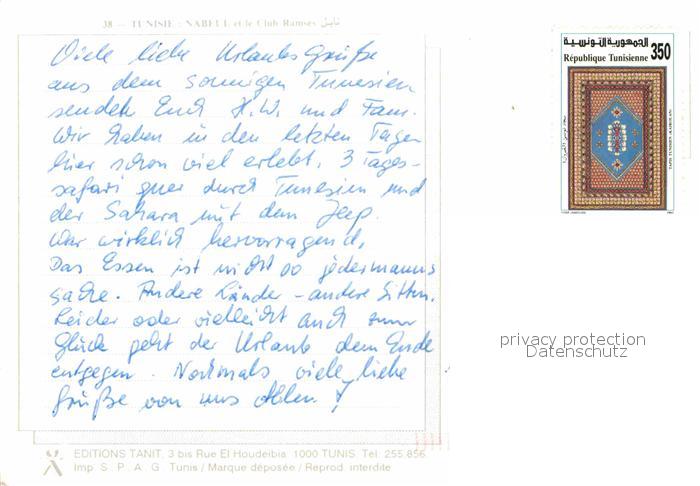 38 — TUNISIE : NABEUL et le Club Ramsès نابل
Viele liebe Urlaubsgrüße
aus dem sonnigen Tunesien
sendet Euch H.W. und Fam.
Wir haben in den letzten Tagen
hier schon viel erlebt. 3 Tages-
safari quer durch Tunesien und
der Sahara mit dem Jeep.
War wirklich hervorragend,
Das Essen ist nicht so jedermanns
sache. Andere Länder - andere Sitten.
Leider oder vielleicht auch zum
Glück geht der Urlaub dem Ende
entgegen. Nochmals viele liebe
Grüße von uns Allen. !
الجمهورية التونسية
République Tunisienne 350
TAPIS TUNISIEN
privacy protection
Datenschutz
EDITIONS TANIT, 3 bis Rue El Houdeibia 1000 TUNIS Tél: 255.856
Imp. S. P. A. G. Tunis / Marque déposée / Reprod. interdite